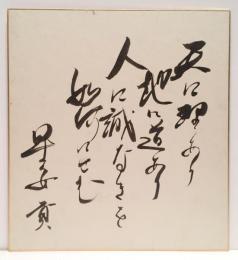 天に理あり
地に道あり
人に誠なきを
如何にせむ
星玄貢